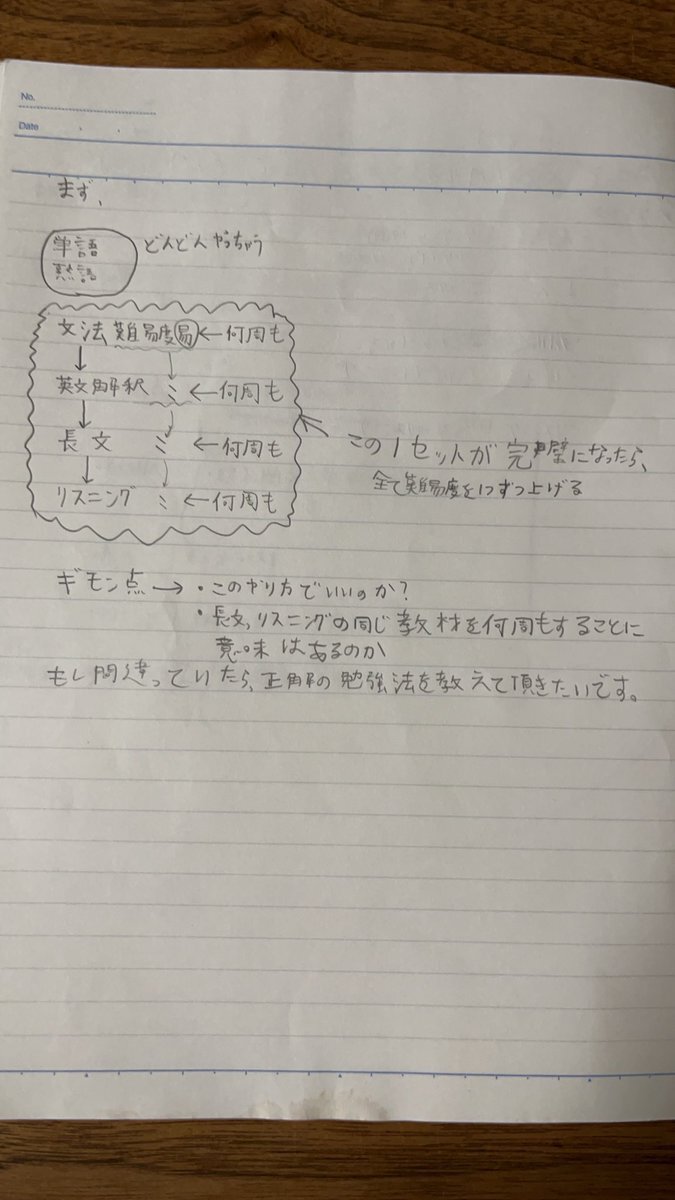 No.
Date
まず、
単語 どんどんやっちゃう
熟語
文法 難易度易 ← 何周も
↓
英文解釈 〃 ← 何周も
↓
長文 〃 ← 何周も
↓
リスニング 〃 ← 何周も
← この1セットが完璧になったら、
全て難易度を1つずつ上げる
ギモン点 → ・このやり方でいいのか?
・長文,リスニングの同じ教材を何周もすることに
意味はあるのか
もし間違っていたら、正解の勉強法を教えて頂きたいです。